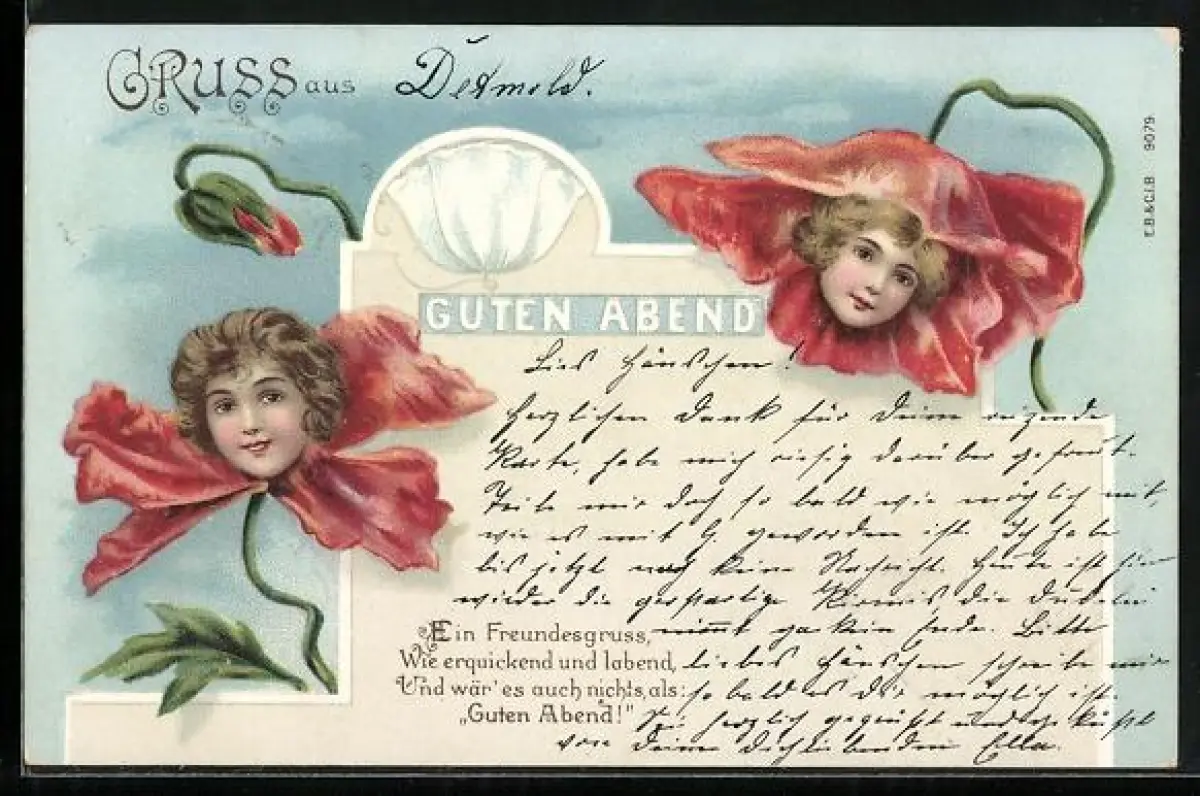 GRUSS aus Detmold.
E.B.&C.i.B 9079
GUTEN ABEND
Lieb Hänschen!
Herzlichen Dank für Deine reizende
Karte, habe mich riesig darüber gefreut.
Teile mir doch so bald wie möglich mit,
wie es mit G. geworden ist. Ich habe
bis jetzt noch keine Nachricht. Heute ist hier
wieder die großartige Kirmes, die Dudelei
nimmt gar kein Ende. Bitte
liebes Hänschen schreibe mir
so bald es dir möglich ist.
Sei herzlich gegrüßt und geküßt
von Deiner Dichliebenden Ella.
Ein Freundesgruss,
Wie erquickend und labend,
Und wär' es auch nichts, als:
„Guten Abend!"